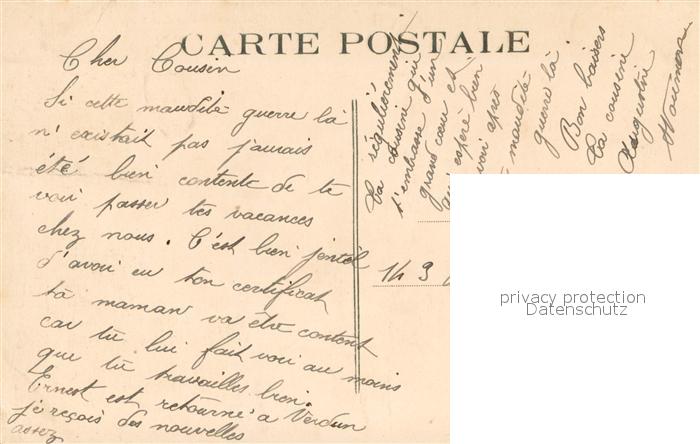 CARTE POSTALE
Cher Cousin
Si cette maudite guerre là
n'existait pas j'aurais
été bien contente de te
voir passer tes vacances
chez nous. C'est bien jentil
d'avoi eu ton certificat
ta maman va être content
car tu lui fait voi au moins
que tu travailles bien.
Ernest est retourné a Verdun
je reçois des nouvelles
assez
régulièrement
Ta cousine qui
t'embrasse d'un
grand cœur et
qui espère bien
voi apré
maudite
guerre là
Bon baisers
Ta cousine
Augustine
14 9
privacy protection
Datenschutz